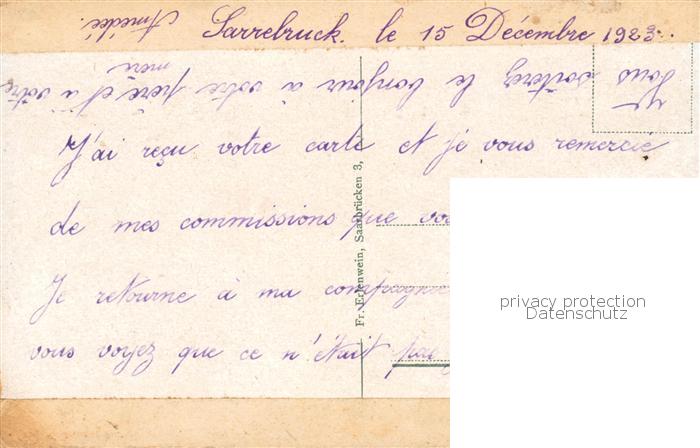 Sarrebruck. le 15 Décembre 1923.
J'ai reçu votre carte et je vous remercie
de mes commissions que vos
Je retourne à ma compagnie
vous voyez que ce n'était pas
Vous souterez le bonjour à votre père et à votre
mère
Amédée.
Fr. Erlenwein, Saarbrücken 3,
privacy protection
Datenschutz